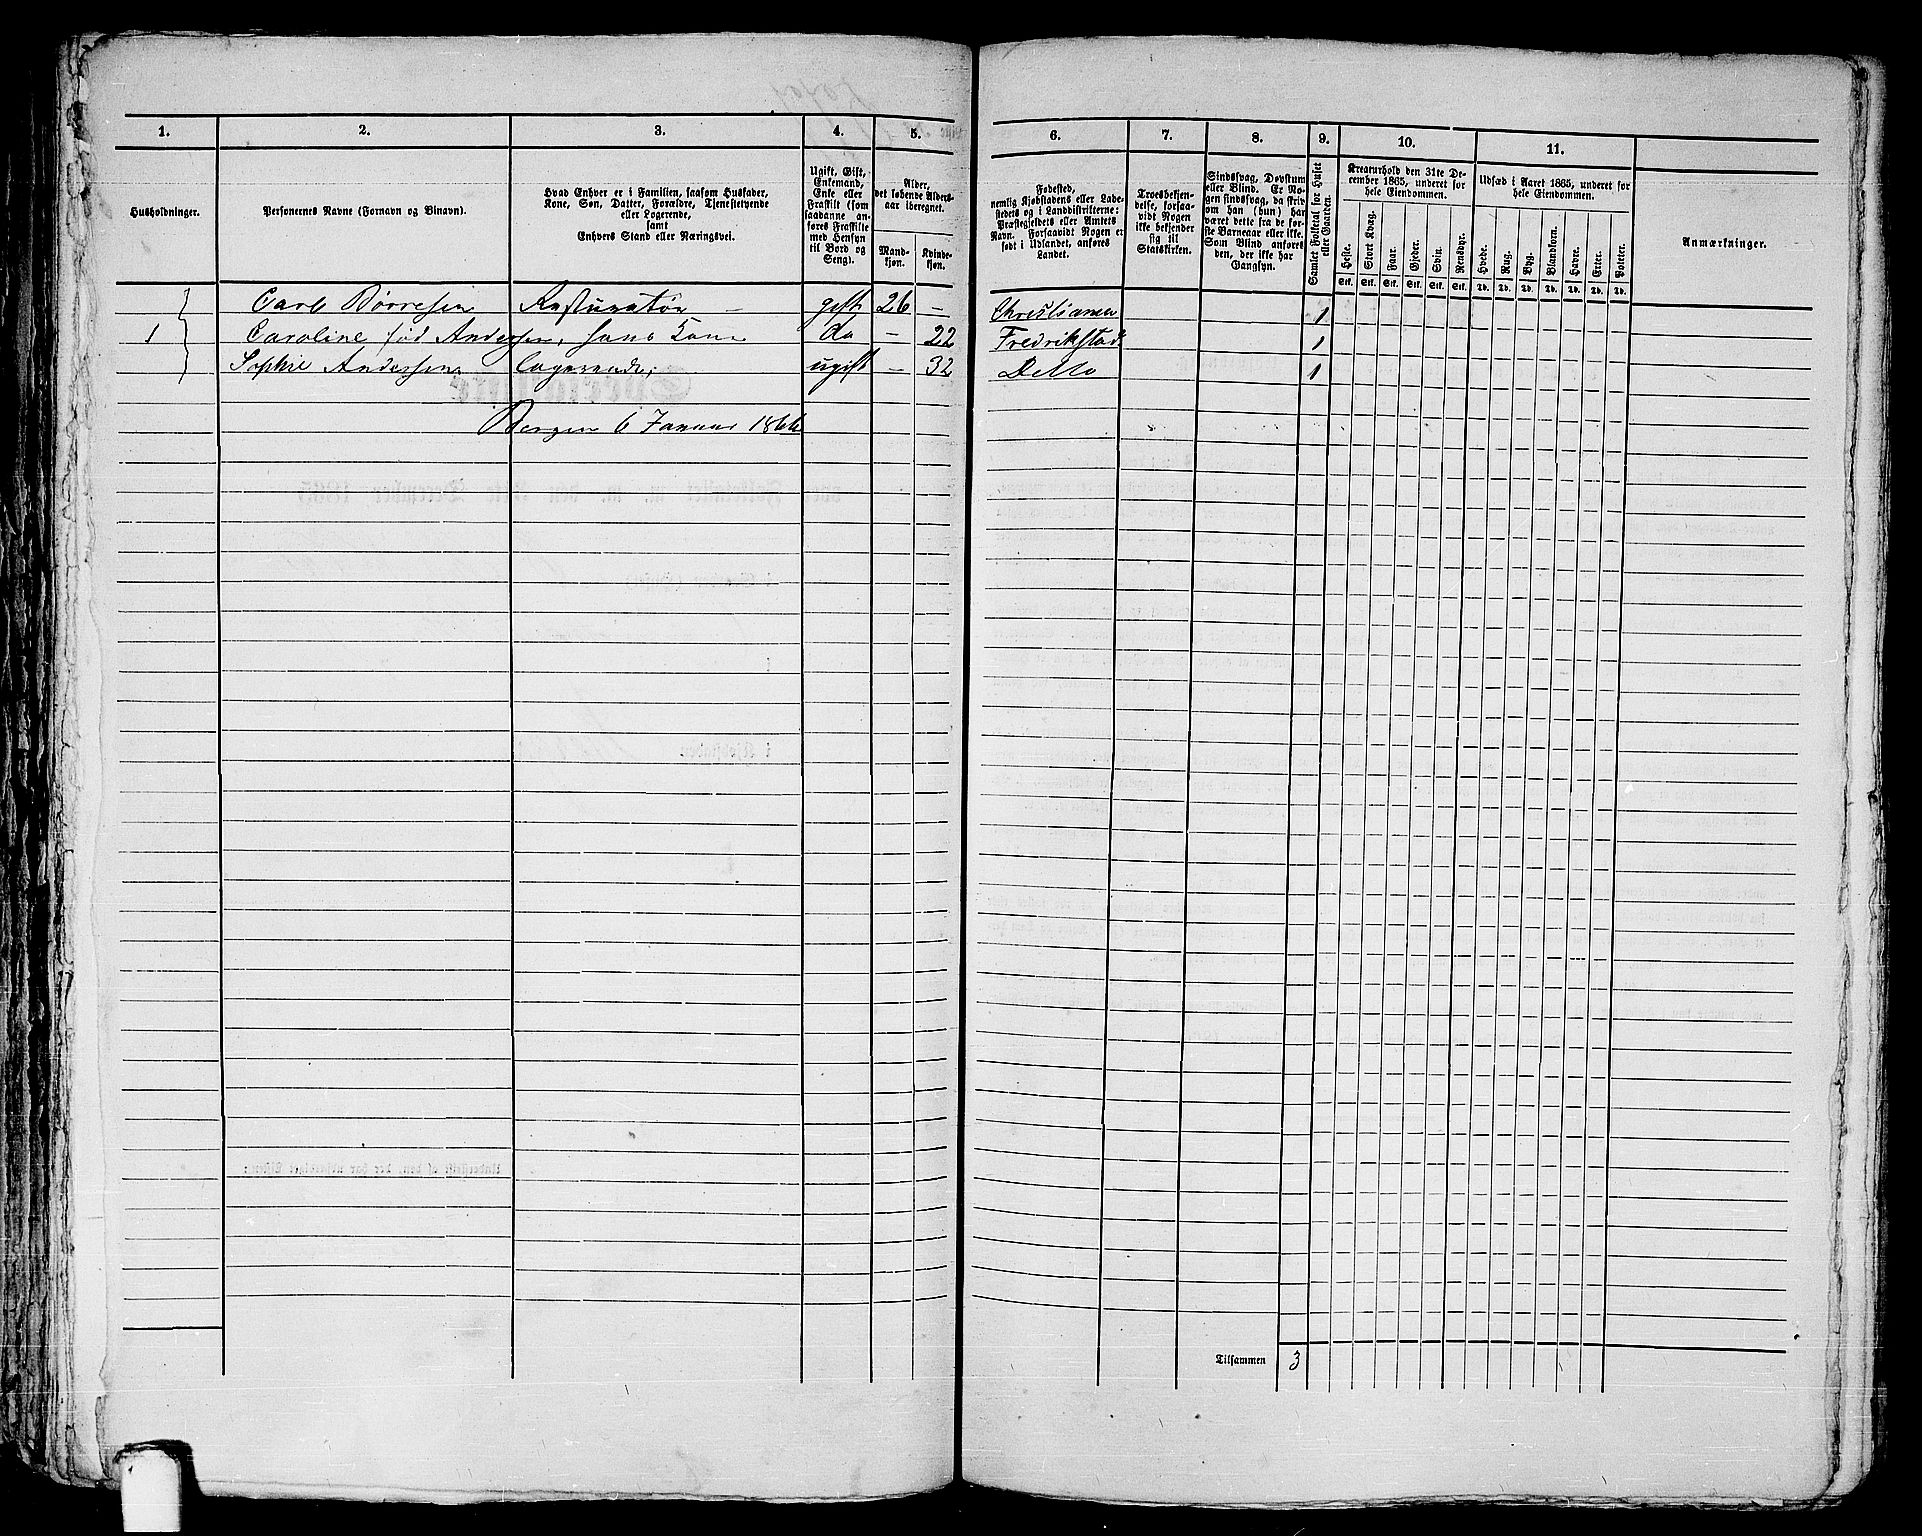 1. 2. 3. 4. 5. 6. 7. 8. 9. 10. 11.
Husholdninger.
Personernes Navne (Fornavn og Binavn).
Hvad Enhver er i Familien, saasom Husfader,
Kone, Søn, Datter, Forældre, Tjenestetyende
eller Logerende,
samt
Enhvers Stand eller Næringsvei.
Ugift, Gift,
Enkemand,
Enke eller
Fraskilt (som
saadanne an-
føres Fraskilte
med Hensyn
til Bord og
Seng).
Alder,
det løbende Alders-
aar iberegnet.
Mand-
kjøn.
Kvinde-
kjøn.
Fødested,
nemlig Kjøbstadens eller Lade-
stedets og i Landdistrikterne:
Præstegjeldets eller Amtets
Navn. Forsaavidt Nogen er
født i Udlandet, anføres
Landet.
Troesbekjen-
delse, forsaa-
vidt Nogen
ikke bekjender
sig til
Statskirken.
Sindssvag, Døvstum
eller Blind. Er No-
gen sindssvag, da skriv
om han (hun) har
været dette fra de før-
ste Barneaar eller ikke.
Som Blind anføres
den, der ikke har
Gangsyn.
Samlet Folketal for Huset
eller Gaarden.
Kreaturhold den 31te De-
cember 1865, underet for
hele Eiendommen.
Heste. Stort Kvæg. Faar. Gjeder. Svin. Rensdyr.
Stk. Stk. Stk. Stk. Stk. Stk.
Udsæd i Aaret 1865, underet for
hele Eiendommen.
Hvede. Rug. Byg. Blandkorn. Havre. Erter. Poteter.
Td. Td. Td. Td. Td. Td. Td.
Anmærkninger.
Carl Børresen Resturatør gift 26 — Christiania 1
1 Caroline fød Andersen, hans Kone do — 22 Fredrikstad 1
Sophie Andersen Logerende; ugift — 32 Detto 1
Bergen 6 Januar 1866
Tilsammen 3